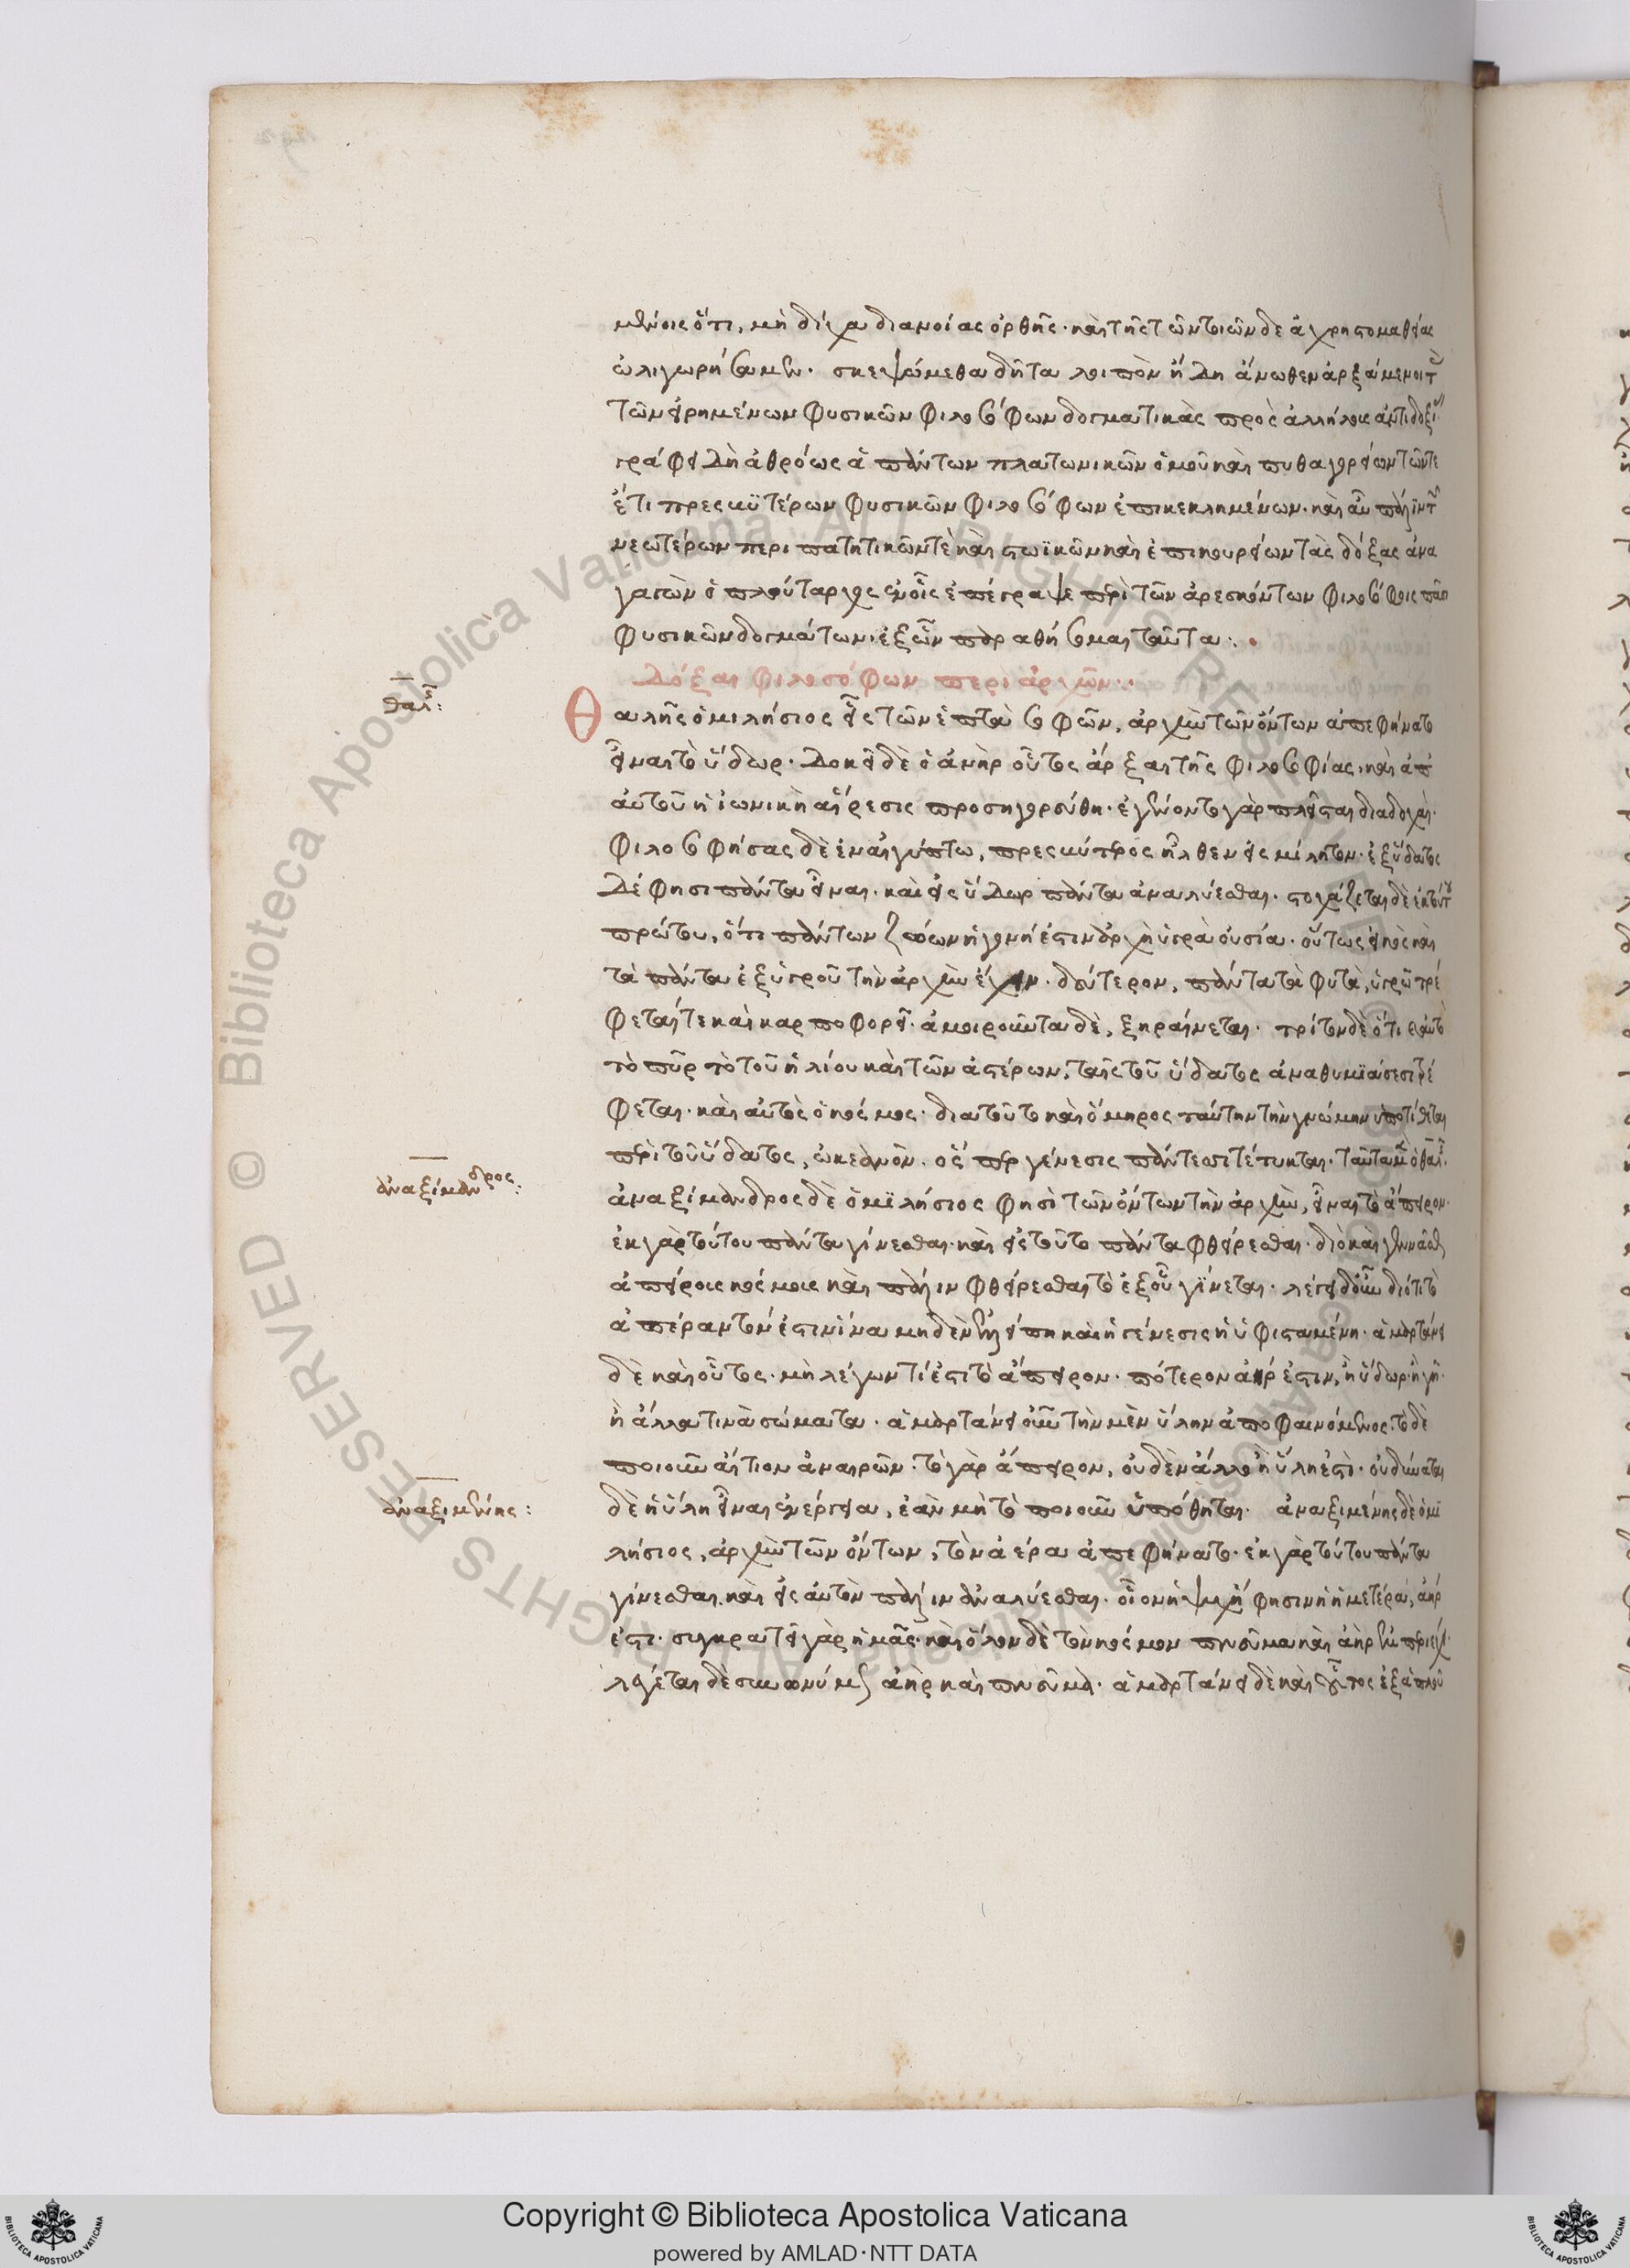 μένοις ὅτι, μὴ δίχα διανοίας ὀρθῆς· καὶ τῆς τῶν τιῶνδε ἀχρηστομαθείας
ὠλιγωρήσαμεν· σκεψώμεθα δῆτα λοιπὸν ἤδη ἄνωθεν ἀρξάμενοι τ
τῶν εἰρημένων φυσικῶν φιλοσόφων δογματικὰς πρὸς ἀλλήλους ἀντιδοξί
γράφει δὴ ἀθρόως ἁπάντων πλατωνικῶν ὁμοῦ καὶ πυθαγορείων τῶν τε
ἔτι πρεσβυτέρων φυσικῶν φιλοσόφων ἐπικεκλημένων· καὶ αὖ πάλιν τ
νεωτέρων περιπατητικῶν τὲ καὶ στωϊκῶν καὶ ἐπικουρείων τὰς δόξας ἀνα
γαγὼν ὁ πλούταρχος ἐν οἷς ἐπέγραψε περὶ τῶν ἀρεσκόντων φιλοσόφοις
φυσικῶν δογμάτων· ἐξ ὧν παραθήσομαι ταῦτα:·
Δόξαι φιλοσόφων περὶ ἀρχῶν:·
θαλῆς:
Θαλῆς ὁ μιλήσιος εἷς τῶν ἑπτὰ σοφῶν, ἀρχὴν τῶν ὄντων ἀπεφήνατο
εἶναι τὸ ὕδωρ· Δοκεῖ δὲ ὁ ἀνὴρ οὗτος ἄρξαι τῆς φιλοσοφίας· καὶ ἀπ
αὐτοῦ ἡ ἰωνικὴ αἵρεσις προσηγορεύθη· ἐγένοντο γὰρ πλεῖσται διαδοχαί·
φιλοσοφήσας δὲ ἐν αἰγύπτω, πρεσβύτερος ἦλθεν εἰς μίλητον· ἐξ ὕδατος
Δέ φησι πάντα εἶναι· καὶ εἰς ὕδωρ πάντα ἀναλύεσθαι· στοχάζεται δὲ ἐκ τούτου
πρώτου, ὅτι πάντων ζώων ἡ γονὴ ἐστιν ἀρχὴ ὑγρὰ οὐσία· οὕτως εἰκὸς καὶ
τὰ πάντα ἐξ ὑγροῦ τὴν ἀρχὴν ἔχειν· δεύτερον, πάντα τὰ φυτὰ, ὑγρῶ τρέ
φεταί τε καὶ καρποφορεῖ· ἀμοιροῦντα δὲ, ξηραίνεται· τρίτον δὲ ὅτι καὶ αὐτὸ
τὸ πῦρ τὸ τοῦ ἡλίου καὶ τῶν ἀστέρων, ταῖς τοῦ ὕδατος ἀναθυμϊάσεσι τρέ
φεται· καὶ αὐτὸς ὁ κόσμος· διατοῦτο καὶ ὅμηρος ταύτην τὴν γνώμην ὑποτίθεται
περὶ τοῦ ὕδατος, ὠκεανὸν· ὅς περ γένεσις πάντεσσι τέτυκται· Ταῦτα μὲν ὁ θαλῆς·
ἀναξίμανδρος:
ἀναξίμανδρος δὲ ὁ μϊλήσιος φησὶ τῶν ὄντων τὴν ἀρχὴν, εἶναι τὸ ἄπειρον·
ἐκ γὰρ τούτου πάντα γίνεσθαι· καὶ εἰς τοῦτο πάντα φθείρεσθαι· διὸ καὶ γεννᾶσθαι
ἀπείρους κόσμους καὶ πάλιν φθείρεσθαι τὸ ἐξ οὗ γίνεται· λέγει δ' οὖν διότι τὸ
ἀπέραντόν ἐστιν ἵνα μηδὲν ἐλλείπη καὶ ἡ γένεσις ἡ ὑφισταμένη· ἁμαρτάνει
δὲ καὶ οὗτος· μὴ λέγων τί ἐστι τὸ ἄπειρον· πότερον ἀήρ ἐστιν, ἢ ὕδωρ· ἢ γῆ·
ἢ ἄλλα τινὰ σώματα· ἁμαρτάνει οὖν τὴν μὲν ὕλην ἀποφαινόμενος· τὸ δὲ
ποιοῦν αἴτιον ἀναιρῶν· τὸ γὰρ ἄπειρον, οὐδὲν ἄλλο ἢ ὕλη ἐστὶ· οὐ δύναται
ἀναξιμένης:
δὲ ἡ ὕλη εἶναι ἐνέργεια, ἐὰν μὴ τὸ ποιοῦν ὑπόθηται· ἀναξιμένης δὲ ὁ μι
λήσιος, ἀρχὴν τῶν ὄντων, τὸν ἀέρα ἀπεφήνατο· ἐκ γὰρ τούτου πάντα
γίνεσθαι, καὶ εἰς αὐτὸν πάλιν ἀναλύεσθαι· οἷον ἡ ψυχή φησιν ἡ ἡμετέρα, ἀήρ
ἐστι· συγκρατεῖ γὰρ ἡμᾶς· καὶ ὅλον δὲ τὸν κόσμον πνεῦμα καὶ ἀὴρ ἐμπεριέχει·
λέγεται δὲ συνωνύμως ἀὴρ καὶ πνεῦμα· ἁμαρτάνει δὲ καὶ οὗτος ἐξ ἁπλοῦ